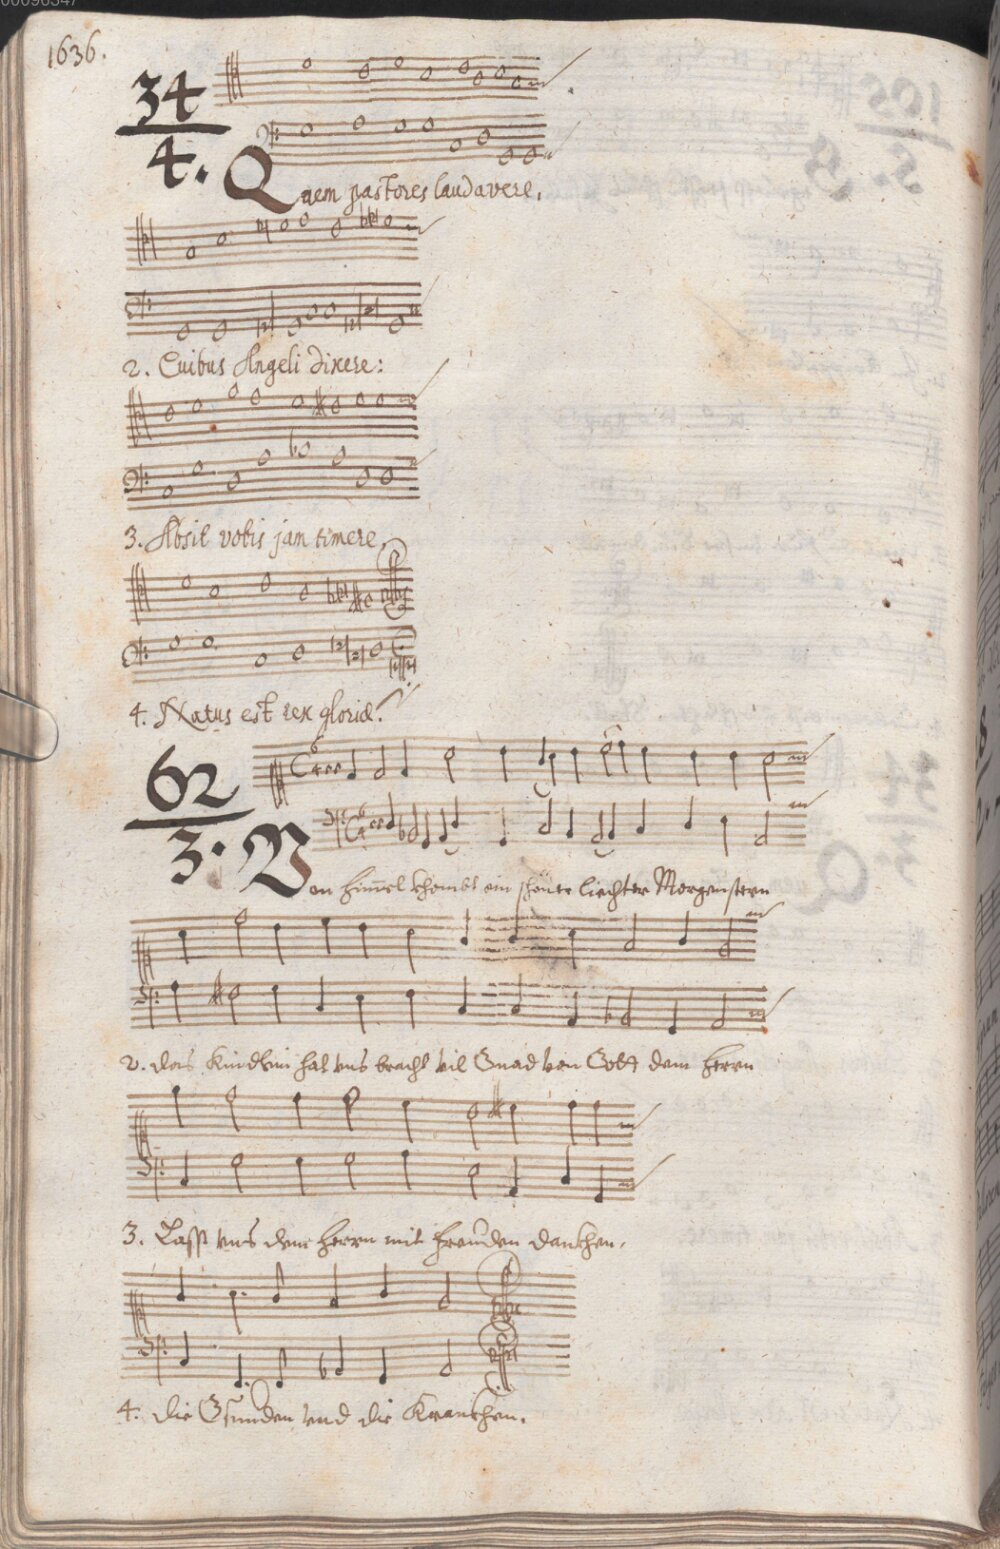 1636.
34
4.
Quem pastores laudavere,
2. Cuibus Angeli dixere:
3. Absit vobis jam timere,
4. Natus est rex gloriæ.
62
3.
Von himel khombt ein schöner liechter Morgenstern
2. das Kindlein hat uns bracht vil Gnad von Gott dem herrn
3. Lasst uns dem herrn mit freuden danckhen,
4. die Gsunden und die Kranckhen.